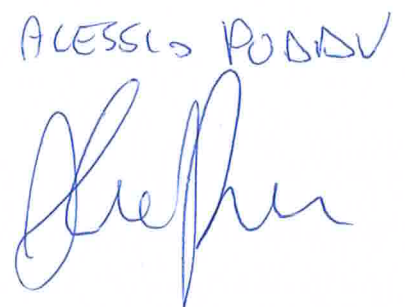 ALESSIO PODDU